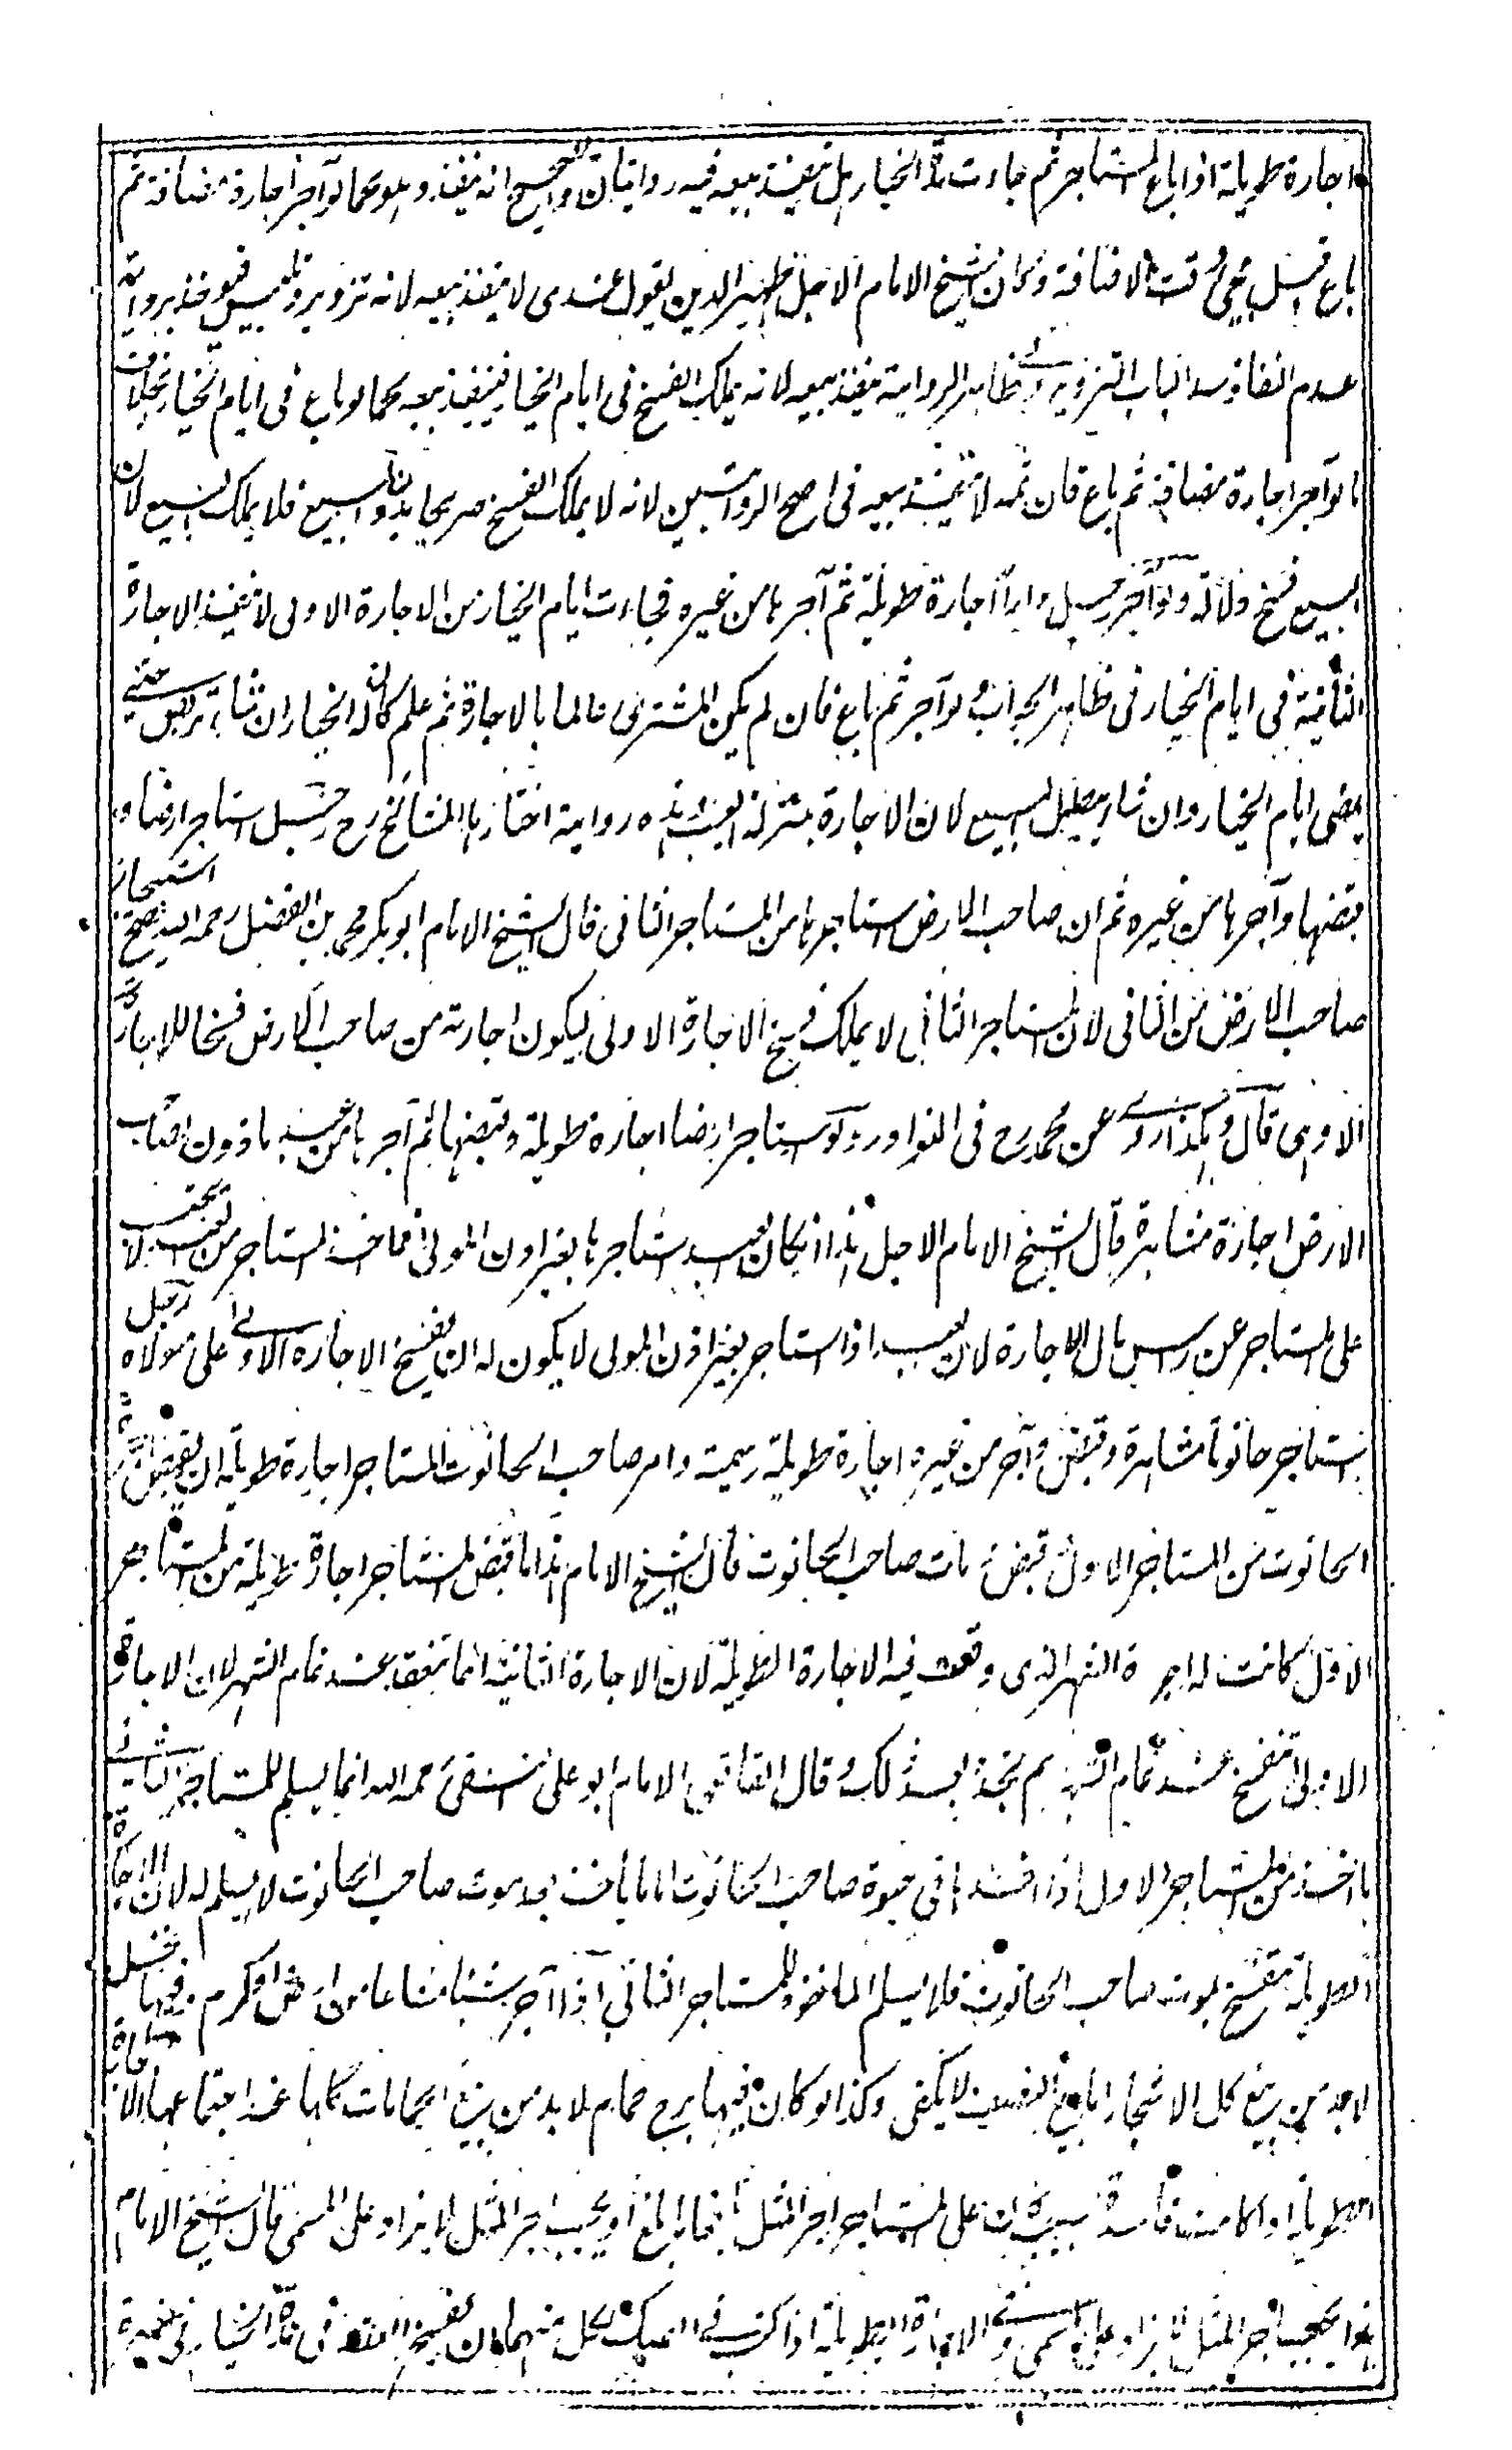 اجارة طويلة اذا باع المستاجر ثم جاءت مدة الخيار هل ينفذ بيعه فيه روايتان والصحيح انه ينفذ وهو كما لو آجر اجارة مضافة ثم
باع قبل مجئ وقت الاضافة وكان الشيخ الامام الاجل ظهير الدين يقول عندى لا ينفذ بيعه لانه تزوير وتلبيس فيوخذ برواية
عدم النفاذ سدا لباب التزوير وفى ظاهر الرواية ينفذ بيعه لانه يملك الفسخ فى ايام الخيار فينفذ بيعه كما لو باع فى ايام الخيار بخلاف
ما لو آجر اجارة مضافة ثم باع فان ثمه لا ينفذ بيعه فى اصح الروايتين لانه لا يملك الفسخ صريحا بدون البيع فلا يملك البيع لان
البيع فسخ دلالة ولو آجر رجل دارا اجارة طويلة ثم آجرها من غيره فجاءت ايام الخيار من الاجارة الاولى لا تنفذ الاجارة
الثانية فى ايام الخيار فى ظاهر الجواب ولو آجر ثم باع فان لم يكن المشترى عالما بالاجارة ثم علم كان له الخيار ان شاء تربص حتى
يمضى ايام الخيار وان شاء يبطل البيع لان الاجارة بمنزلة العيب هذه رواية اختارها المشائخ رح رجل استاجر ارضا و
قبضها وآجرها من غيره ثم ان صاحب الارض استاجرها من المستاجر الثانى قال الشيخ الامام ابو بكر محمد بن الفضل رحمه الله يصح استيجار
صاحب الارض من الثانى لان المستاجر الثانى لا يملك فسخ الاجارة الاولى ليكون اجارته من صاحب الارض فسخا للاجارة
الاولى قال وهكذا روى عن محمد رح فى النوادر ولو استاجر ارضا اجارة طويلة وقبضها ثم آجرها من عبد ماذون لصاحب
الارض اجازة مشاهرة قال الشيخ الامام الاجل هذا اذا كان العبد استاجرها بغير اذن المولى فما اخذ المستاجر من العبد لا يحتسب
على المستاجر عن راس مال الاجارة لان العبد اذا استاجر بغير اذن المولى لا يكون له ان يفسخ الاجارة الاولى على مولاه رجل
استاجر حانوتا مشاهرة وقبض وآجر من غيره اجارة طويلة رسمية وامر صاحب الحانوت المستاجر اجارة طويلة ان يقبض
الحانوت من المستاجر الاول قبض مات صاحب الحانوت قال الشيخ الامام هذا ما قبض المستاجر اجارة طويلة من المستاجر
الاول كانت له اجرة الشهر الذى وقعت فيه الاجارة الطويلة لان الاجارة الثانية انما تنعقد عند تمام الشهر لان الاجارة
الاولى تنفسخ عند تمام الشهر ثم يتجدد بعد ذلك وقال القاضى الامام ابو على النسفى رحمه الله انما يسلم للمستاجر الثانى
ما اخذ من المستاجر الاول اذا اخذها فى حيوة صاحب الحانوت اما ما يأخذ بعد موت صاحب الحانوت لا يسلم له لان الاجارة
الطويلة تنفسخ بموت صاحب الحانوت فلا يسلم الماخوذ للمستاجر الثانى اذا آجر شيئا مشاعا من ارض او كرم وفيها نخيل
لابد من بيع كل الاشجار اما بيع النصف لا يكفى وكذا لو كان فيها برج حمام لا بد من بيع الحمامات كلها عند اجتماعها الاجارة
الطويلة اذا كانت فاسدة بسبب على المستاجر اجر المثل بالغا ما بلغ او يجب اجر المثل لا يزاد على المسمى قال الشيخ الامام
هذا يجب اجر المثل لا يزاد على المسمى وفى الاجارة الطويلة اذا كتب فى الصك لكل منهما ان يفسخ العقد فى مدة الخيار فى